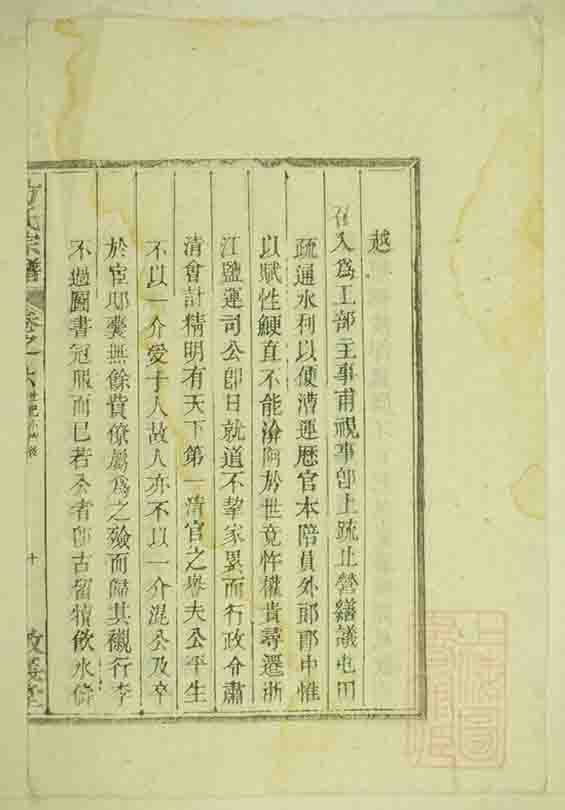 越
召入爲工部主事甫視事卽上疏止營繕議屯田
疏通水利以便漕運歷官本陪員外郎郎中惟
以賦性鯁直不能淪阿於世竟忤權貴尋遷浙
江鹽運司公卽日就道不挈家累而行政令肅
清會計精明有天下第一清官之譽夫公平生
不以一介愛于人故人亦不以一介混公及卒
於宦邸囊無餘貲僚屬爲之殮而歸其櫬行李
不過圖書冠服而已若公者卽古留犢飲水倚
方氏宗譜 卷之六 十 敦義堂